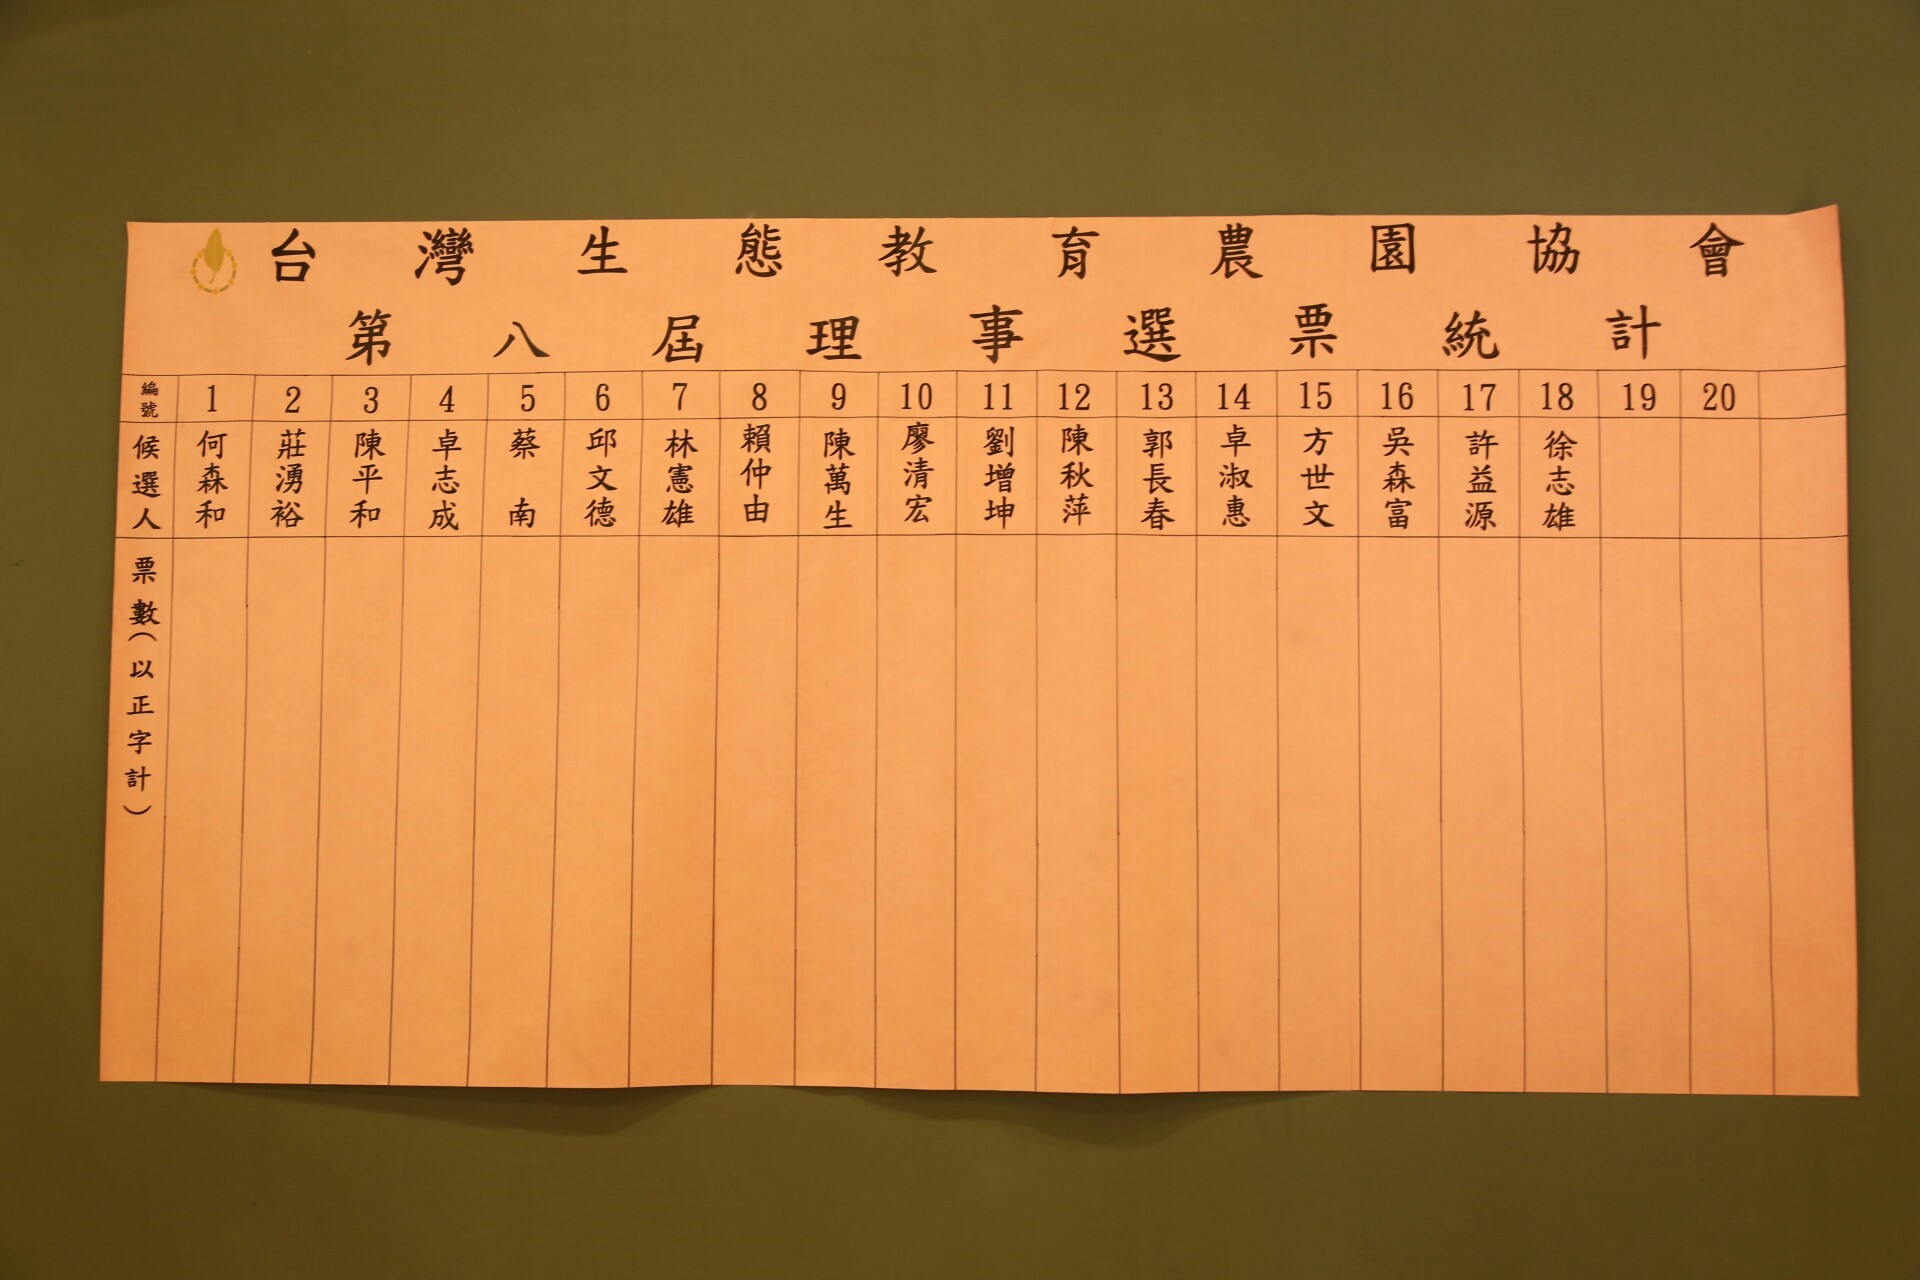 台灣生態教育農園協會
第八屆理事選票統計
編號 1 2 3 4 5 6 7 8 9 10 11 12 13 14 15 16 17 18 19 20
候選人 何森和 莊湧裕 陳平和 卓志成 蔡南 邱文德 林憲雄 賴仲由 陳萬生 廖清宏 劉增坤 陳秋萍 郭長春 卓淑惠 方世文 吳森富 許益源 徐志雄
票數(以正字計)